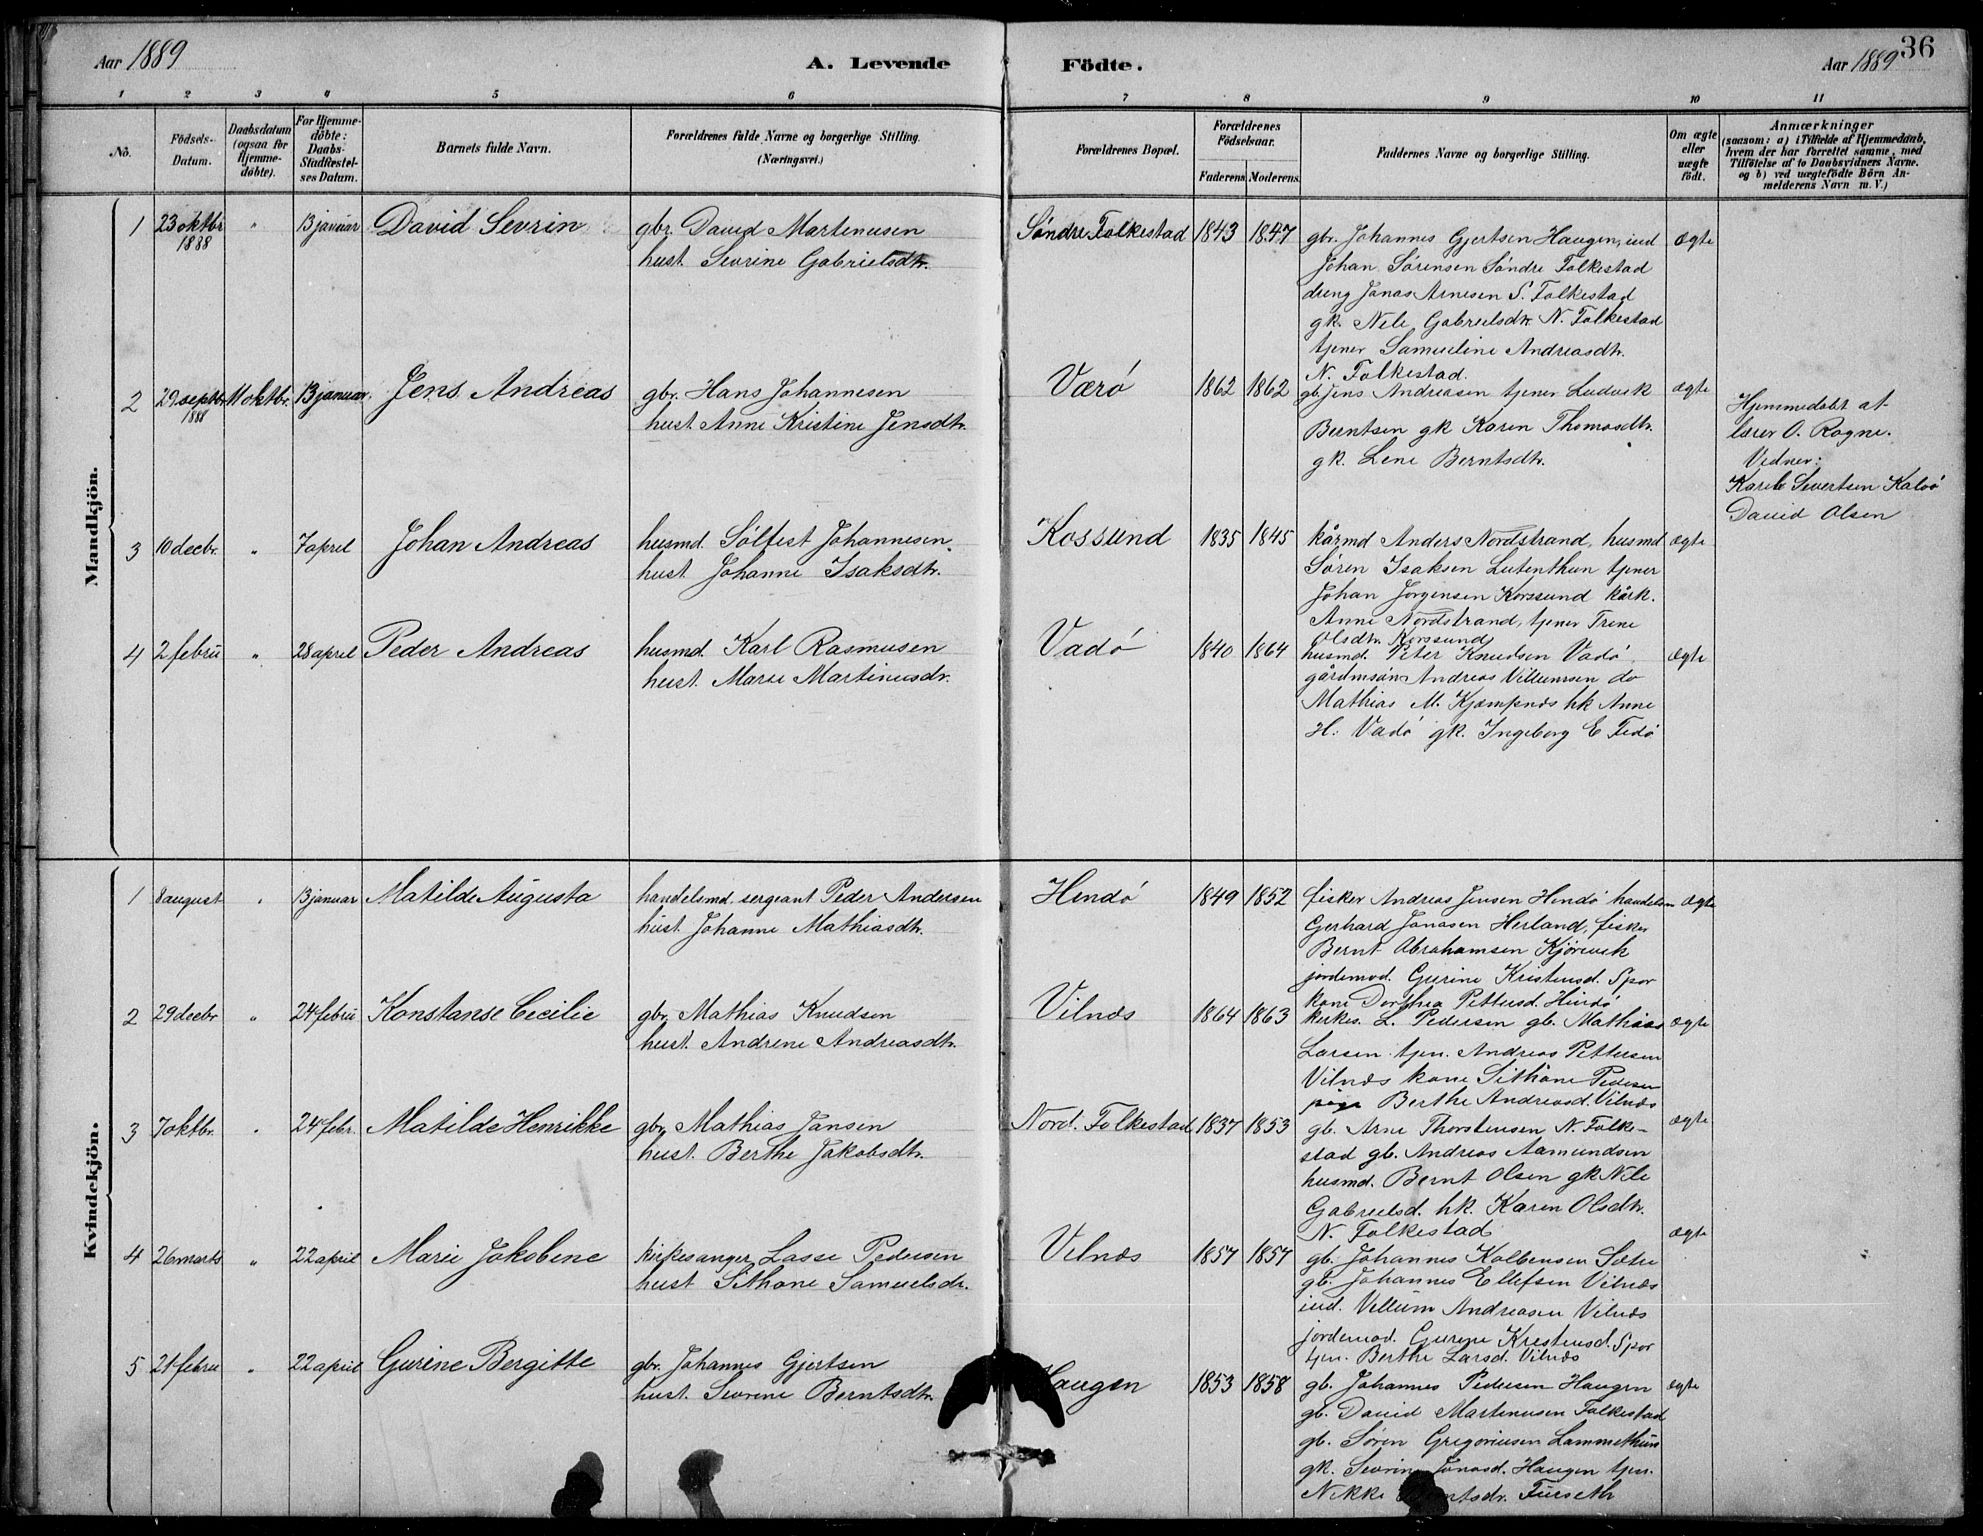 Aar 1889
A. Levende
Födte.
Aar 1889
36
1 2 3 4 5 6 7 8 9 10 11
No.
Födsels-Datum.
Daabsdatum (ogsaa for Hjemme-döbte).
For Hjemme-döbte: Daabs-Stadfæstel-ses Datum.
Barnets fulde Navn.
Forældrenes fulde Navne og borgerlige Stilling. (Næringsvei.)
Forældrenes Bopæl.
Forældrenes Födselsaar.
Faderens. Moderens.
Faddernes Navne og borgerlige Stilling.
Om ægte eller uægte födt.
Anmærkninger
(saasom: a) i Tilfælde af Hjemmedaab, hvem der har forrettet samme, med Tilföielse af to Daabsvidners Navne. og b) ved uægtefödte Börn An-melderens Navn m. V.)
Mandkjön.
1 23 oktbr 1888 " 13 januar David Sevrin
gbr. David Martenusen
hust. Sevrine Gabrielsdtr.
Söndre Folkestad 1843 1847
gbr. Johannes Gjertsen Haugen, ind
Johan Sørensen Söndre Folkestad
dreng Jonas Arnesen S. Folkestad
gk. Nele Gabrielsdtr N. Folkestad
tjener Samueline Andreasdtr.
N. Folkestad.
ægte
2 29 septbr 1888 11 oktbr. 13 januar. Jens Andreas
gbr. Hans Johannesen
hust. Anne Kristine Jensdtr.
Værö 1862 1862
gb. Jens Andreasen tjener Ludvik
Berntsen gk Karen Thomasdtr.
gk. Lene Berntsdtr.
ægte
Hjemmedöbt af
lærer O. Rogne.
Vidner:
Karele Sivertsen Kalvö
David Olsen
3 10 decbr. " 7 april Johan Andreas
husmd. Sölfest Johannesen
hust. Johanne Isaksdtr.
Kossund 1835 1845
kårmd Anders Nordstrand, husmd
Sören Isaksen Lutenthun tjener
Johan Jörgensen Korssund kårk.
Anne Nordstrand, tjener Trene
Olsdtr. Korssund
ægte
4 2 febru " 28 april Peder Andreas
husmd. Karl Rasmusen
hust. Marie Martinusdr.
Vadö 1840 1864
husmd. Peter Knudsen Vadö
gårdmsön Andreas Villumsen do
Mathias M. Kjempnes hk Anne
H. Vadö gk. Ingeborg E Fedö
ægte
Kvindekjön.
1 8 august " 13 januar Matilde Augusta
handelsmd. sergeant Peder Andersen
hust. Johanne Mathiasdtr.
Hendö 1849 1852
fisker Andreas Jensen Hendö handelsm
Gerhard Jonasen Herland, fisker
Bernt Abrahamsen Kjörevik
jordemod. Gurine Kristensd. Spor
kone Dorthea Pettersd. Hindö
ægte
2 29 decbr " 24 febru Konstanse Cecilie
gbr. Mathias Knudsen
hust. Andrene Andreasdtr.
Vilnes 1864 1863
kirkes. L. Pedersen gb. Mathias
Larsen tjen. Andreas Pettersen
Vilnes kone Sithane Pedersen
pige Berthe Andreasd. Vilnes
ægte
3 7 oktbr. " 24 febr. Matilde Henrikke
gbr. Mathias Jansen
hust. Berthe Jakobsdtr.
Nord. Folkestad 1837 1853
gb. Arne Thorstensen N. Folke-
stad gb. Andreas Aamundsen
husmd. Bernt Olsen gk Nele
Gabrielsd. hk. Karen Olsdtr.
N. Folkestad
ægte
4 26 marts " 22 april Marie Jakobine
kirkesanger Lasse Pedersen
hust Sithane Samuelsdr.
Vilnes 1857 1857
gb. Johannes Kolbensen Sætre
gb. Johannes Ellefsen Vilnes
ind. Villum Andreasen Vilnes
jordemod. Gurine Kristensd. Spor
tjen. Berthe Larsd. Vilnes
ægte
5 21 febru " 22 april Gurine Bergitte
gbr. Johannes Gjertsen
hust. Sevrene Berntsdtr.
Haugen 1853 1858
gb. Johannes Pedersen Haugen
gb. David Martenusen Folkestad
gb. Sören Gregoriusen Lammethun
gk. Sevrine Jonasd. Haugen tjen.
Nikke Furseth
ægte